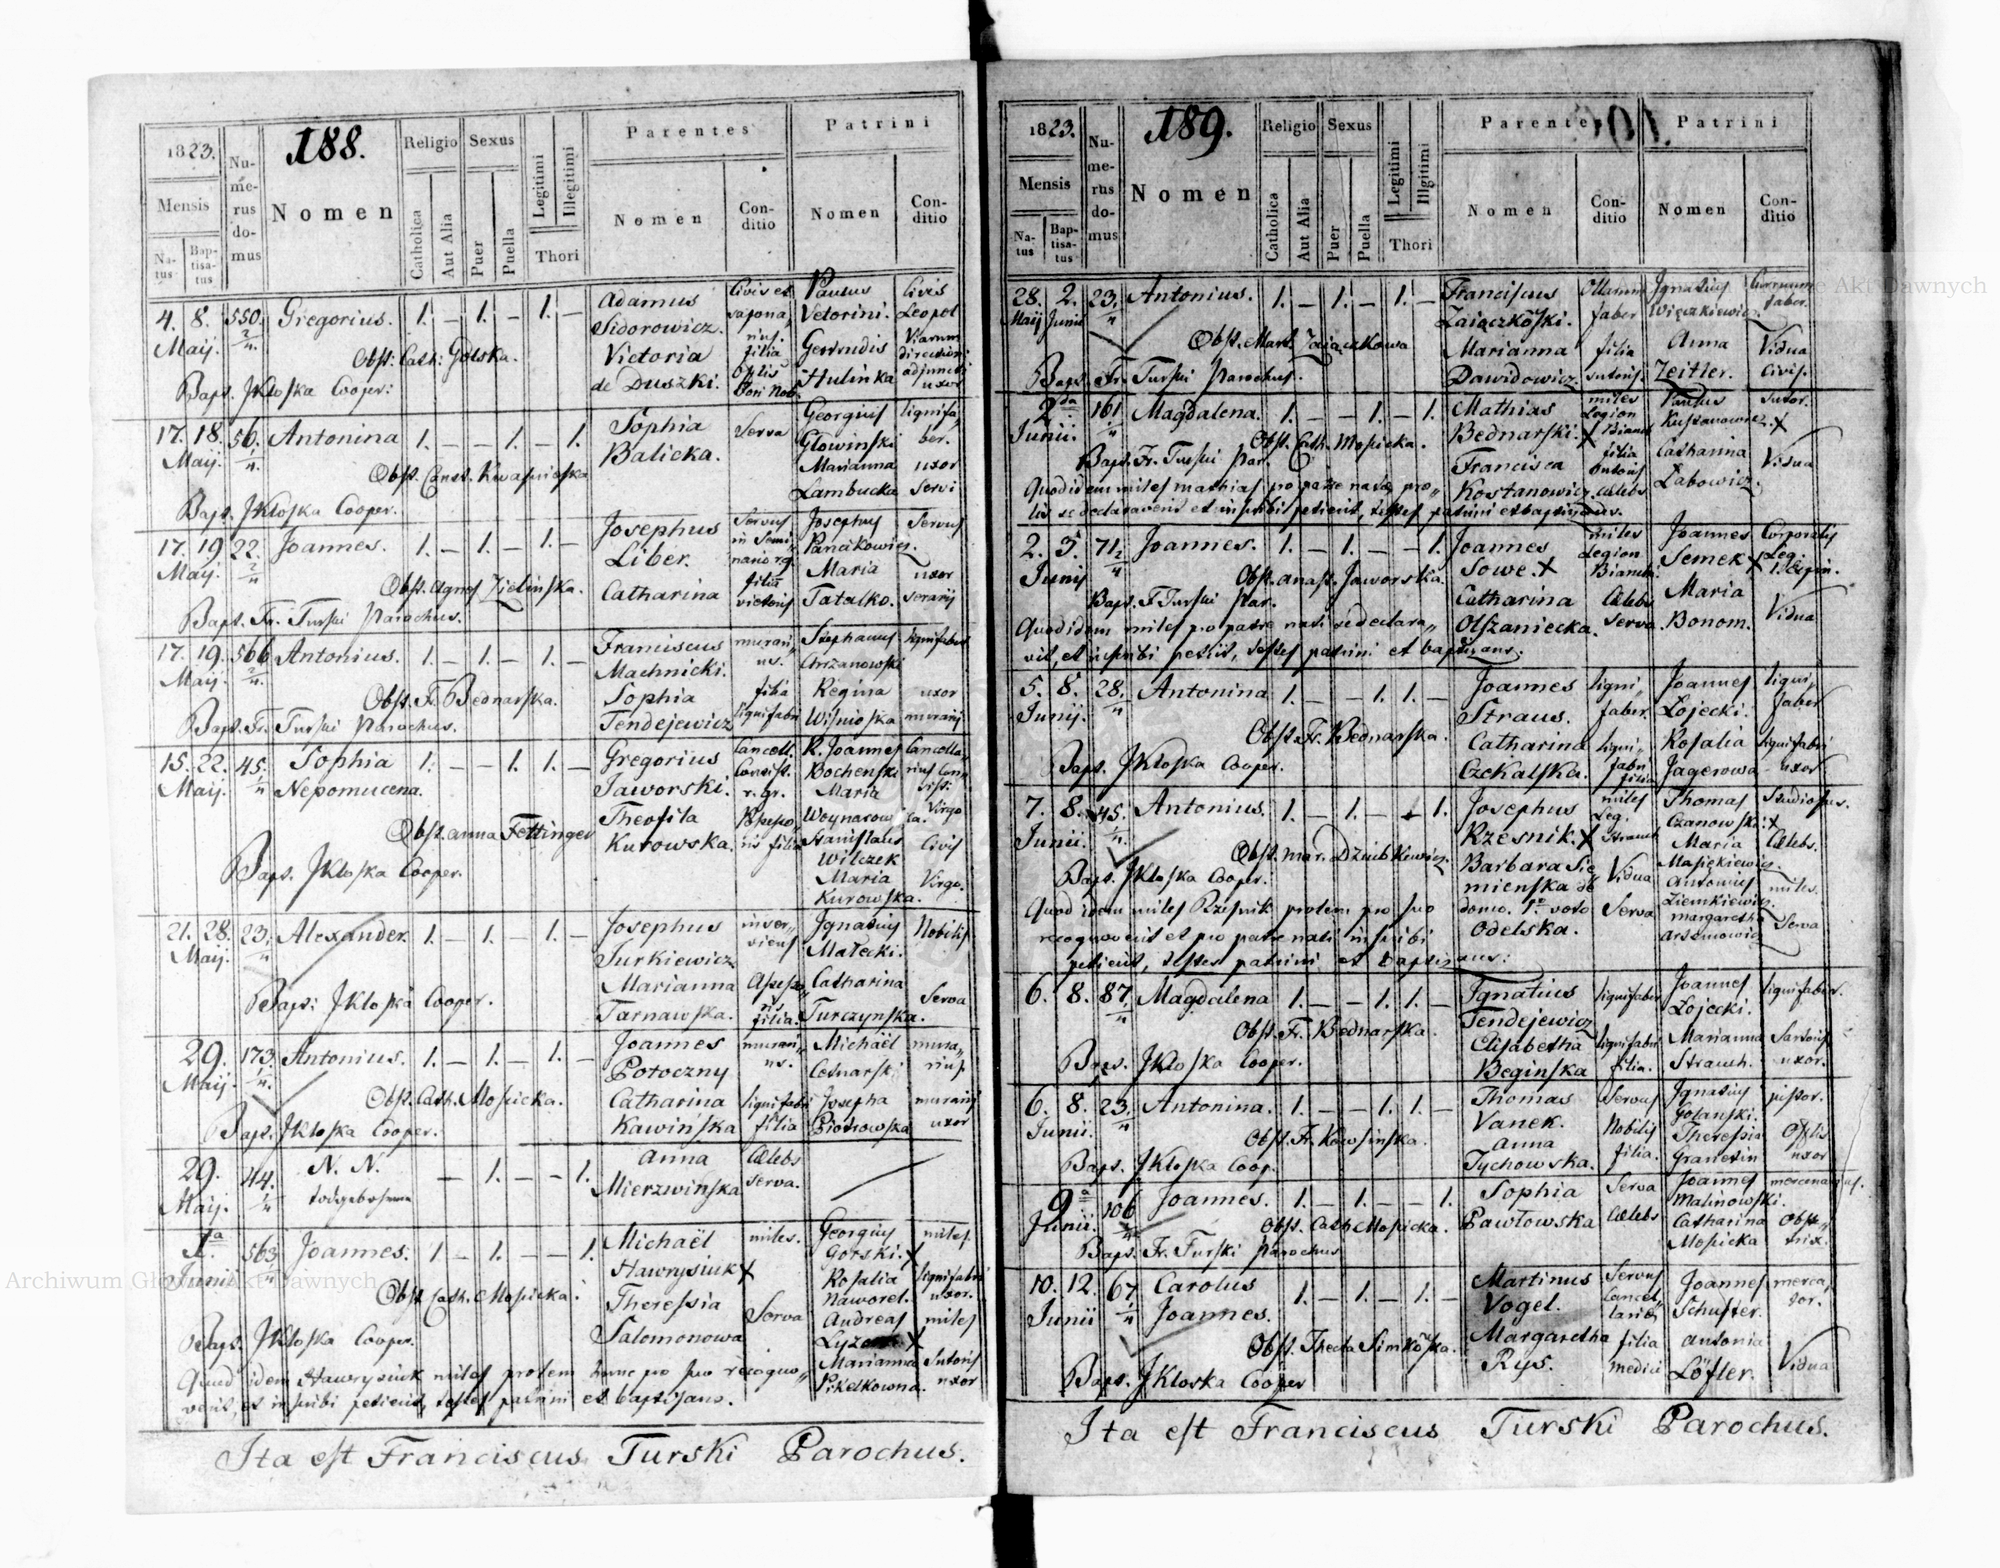 188.
1823.
Mensis
Na-
tus
Bap-
tisa-
tus
Nu-
me-
rus
do-
mus
Nomen
Religio
Catholica
Aut Alia
Sexus
Puer
Puella
Legitimi
Illegitimi
Thori
Parentes
Nomen
Con-
ditio
Patrini
Nomen
Con-
ditio
4. 8. 550. Gregorius. 1. — 1. — 1. —
Maij.
Obst: Cath: Golska.
Bapt. JKloska Cooper:
Adamus
Sidorowicz.
Victoria
de Duszki.
Civis et
sapona„
rius.
filia
Paulus
Vetorini.
Gertrudis
Hulinka
Civis
Leopol
uxor
17. 18. 56. Antonina 1. — — 1. — 1.
Maij.
Bapt. JKloska Cooper.
Sophia
Balicka.
Serva
Georgius
Glowinski
Marianna
Lambucka
lignifa„
ber.
uxor
servi
17. 19 22. Joannes. 1. — 1. — 1. —
Maij
Obst. Agnes Zielinska.
Bapt. Fr. Turski Parochus.
Josephus
Liber.
Catharina
Servus
in Semi„
nario r.g.
filia
Josephus
Pancakowicz.
Maria
Tatalko.
Servus
uxor
17. 19. 566 Antonius. 1. — 1. — 1. —
Maij.
Obst. Fr. Bednarska.
Bapt. Fr. Turski Parochus.
Franciscus
Machnicki.
Sophia
Tendejewicz
murari„
us.
filia
lignifabri
Stephanus
Chrzanowski
Regina
Wisnioska
lignifaber
uxor
murarij
15. 22. 45. Sophia 1. — — 1. 1. —
Maij. Nepomucena.
Obst. Anna Fettinger
Bapt. JKloska Cooper.
Gregorius
Jaworski.
Theofila
Kurowska.
Cancell.
Consist.
r. gr.
R. Joannes
Bochenski
Maria
Stanislaus
Wilczek
Maria
Kurowska.
Virgo
Civis
Virgo.
21. 28. 23. Alexander 1. — 1. — 1. —
Maij.
Bapt: JKloska Cooper.
Josephus
Jurkiewicz
Marianna
Tarnawska.
inser„
viens
filia.
Ignatius
Małecki.
Catharina
Turczynska.
Nobilis
Serva
29. 173. Antonius. 1. — 1. — 1. —
Maij.
Obst. Cath. Mosicka.
Bapt. JKloska Cooper.
Joannes
Potoczny
Catharina
Kawińska
murari„
us.
lignifabri
filia
Michaël
Cesnarski
Josepha
Piotrowska
mura„
rius
murarij
uxor
29. 44. N. N. — 1. — 1.
Maij. todgebohrner
Anna
Mierzwińska
Cælebs
Serva.
1a 563. Joannes. 1 — 1. — — 1.
Junii
Obst. Cath. Mosicka.
Bapt. JKloska Cooper.
Michaël
Hawrysiuk X
Theressia
Salomonowa
miles.
Serva
Georgius
Gorski. X
Rosalia
Naworel.
Andreas
X
Marianna
Pikelkowna.
miles
lignifabri
uxor.
miles
Sutoris
uxor
Quod idem Hawrysiuk miles prolem hanc pro suo recogno„
verit, et inscribi petierit, testes patrini et baptisans.
Ita est Franciscus Turski Parochus.
189.
1823.
Mensis
Na-
tus
Bap-
tisa-
tus
Nu-
me-
rus
do-
mus
Nomen
Religio
Catholica
Aut Alia
Sexus
Puer
Puella
Legitimi
Illgitimi
Thori
Parentes
Nomen
Con-
ditio
Patrini
Nomen
Con-
ditio
28. 2. 23. Antonius. 1. — 1. — 1. —
Maij Junii
Obst. Mart. Zajaczkowa
Bapt. Fr. Turski Parochus.
Franciscus
Zaiączkoski.
Marianna
Dawidowicz.
faber
filia
sutoris.
Ignatius
Więckiewicz.
Anna
Zeitler.
faber.
Vidua
Civis.
2da 161 Magdalena. 1. — — 1. — 1.
Junii.
Obst. Cath. Mosicka.
Bapt. Fr. Turski Par.
Mathias
Bednarski. X
Francisca
Kostanowicz.
miles
Legion
Bianch
filia
sutoris
cælebs
Paulus
Kustanowicz.
Catharina
Labowicz.
Sutor.
X
Vidua
Quod idem miles Mathias pro patre natæ pro„
lis se declaraverit et inscribi petierit, testes patrini et baptisans.
2. 3. 71 Joannes. 1. — 1. — — 1.
Junij
Obst. Anast. Jaworska.
Bapt. F Turski Par.
Joannes
Sowe. X
Catharina
Olszaniecka.
miles
Legion
Bianch.
Cælebs
Serva.
Joannes
Semek X
Maria
Bonom.
Corporalis
Leg.
Vidua
Quod idem miles pro patre nati se declara„
vit, et inscribi petiit, testes patrini et baptisans.
5. 8. 28. Antonina 1. — — 1. 1. —
Junij.
Obst. Fr. Bednarska.
Bapt. JKloska Cooper.
Joannes
Straus.
Catharina
Czekalska.
ligni„
faber.
ligni„
fabri
filia
Joannes
Łojecki.
Rosalia
Jagerowa
ligni„
faber
lignifabri
uxor
7. 8. 45. Antonius. 1. — 1. — — 1.
Junii.
Obst. Mar. Dziubkiewicz.
Bapt. JKloska Cooper.
Josephus
Rzesnik. X
Barbara Sie„
mienska de
domo. 1o voto
Odelska.
miles
Leg.
Strauch
Vidua
Serva
Thomas
Czanowski. X
Maria
Masiękiewicz.
Antonius
Ziemkiewicz.
Margaretha
Arsemowicz
Studiosus.
Cælebs.
miles.
Serva
Quod idem miles Rzesnik prolem pro suo
recognoverit et pro patre nati inscribi
petierit, testes patrini et baptisans.
6. 8. 87. Magdalena 1. — — 1. 1. —
Obst. Fr. Bednarska.
Bapt. JKloska Cooper.
Ignatius
Tendejewicz
Elisabetha
Beginska
lignifaber
lignifabri
filia.
Joannes
Łojecki.
Marianna
Strauch.
lignifaber.
Sartoris
uxor.
6. 8. 23. Antonina. 1. — — 1. 1. —
Junii.
Obst. Fr. Kawsinska.
Bapt. JKloska Coop.
Thomas
Vanek.
Anna
Tychowska.
Servus
Nobilis
filia.
Ignatius
Golanski.
Theressia
Granetin
pistor.
uxor
9a 106 Joannes. 1. — 1. — — 1.
Junii.
Obst. Cath. Mosicka.
Bapt. Fr. Turski Parochus
Sophia
Pawłowska
Serva
Cælebs
Joannes
Malinowski.
Catharina
Mosicka
mercenarius.
Obste„
trix.
10. 12. 67. Carolus 1. — 1. — 1. —
Junii Joannes.
Obst. Thecla Simkoska.
Bapt. JKloska Cooper
Martinus
Vogel.
Margaretha
Rys.
Servus
Cancel„
lariæ
filia
medici
Joannes
Schuster.
Antonia
Löfler.
merca„
tor.
Vidua
Ita est Franciscus Turski Parochus.
Archiwum Główne Akt Dawnych
Archiwum Główne Akt Dawnych